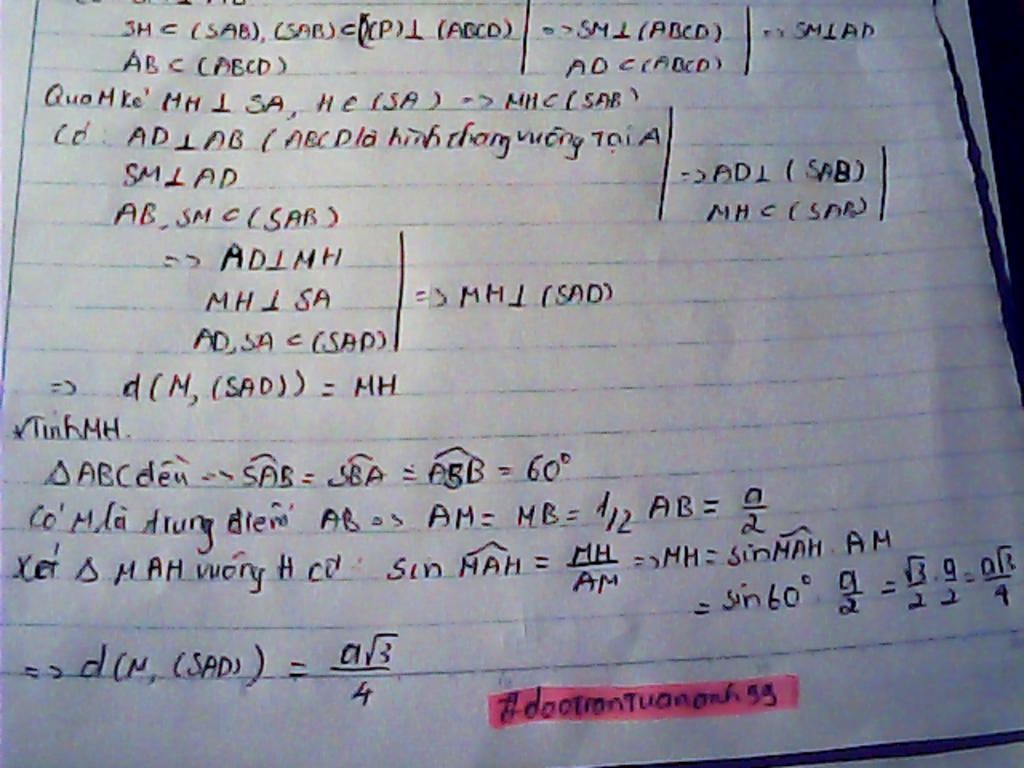 SM ⊂ (SAB), (SAB) ⊂ (P) ⊥ (ABCD) | => SM ⊥ (ABCD) | => SM ⊥ AD
AB ⊂ (ABCD) | AD ⊂ (ABCD) |
Qua M kẻ MH ⊥ SA, H ∈ (SA) => MH ⊂ (SAB)
Có: AD ⊥ AB (ABCD là hình thang vuông tại A |
SM ⊥ AD | => AD ⊥ (SAB) |
AB, SM ⊂ (SAB) | MH ⊂ (SAB) |
=> AD ⊥ MH |
MH ⊥ SA | => MH ⊥ (SAD)
AD, SA ⊂ (SAD) |
=> d(M, (SAD)) = MH
* Tính MH.
Δ ABC đều => SAB = SBA = ASB = 60°
Có M là trung điểm AB => AM = MB = 1/2 AB = a/2
Xét Δ MAH vuông H có: sin MAH = MH/AM => MH = sin MAH . AM
= sin 60° . a/2 = √3/2 . a/2 = a√3/4
=> d(M, (SAD)) = a√3/4
#daotrantuananh99